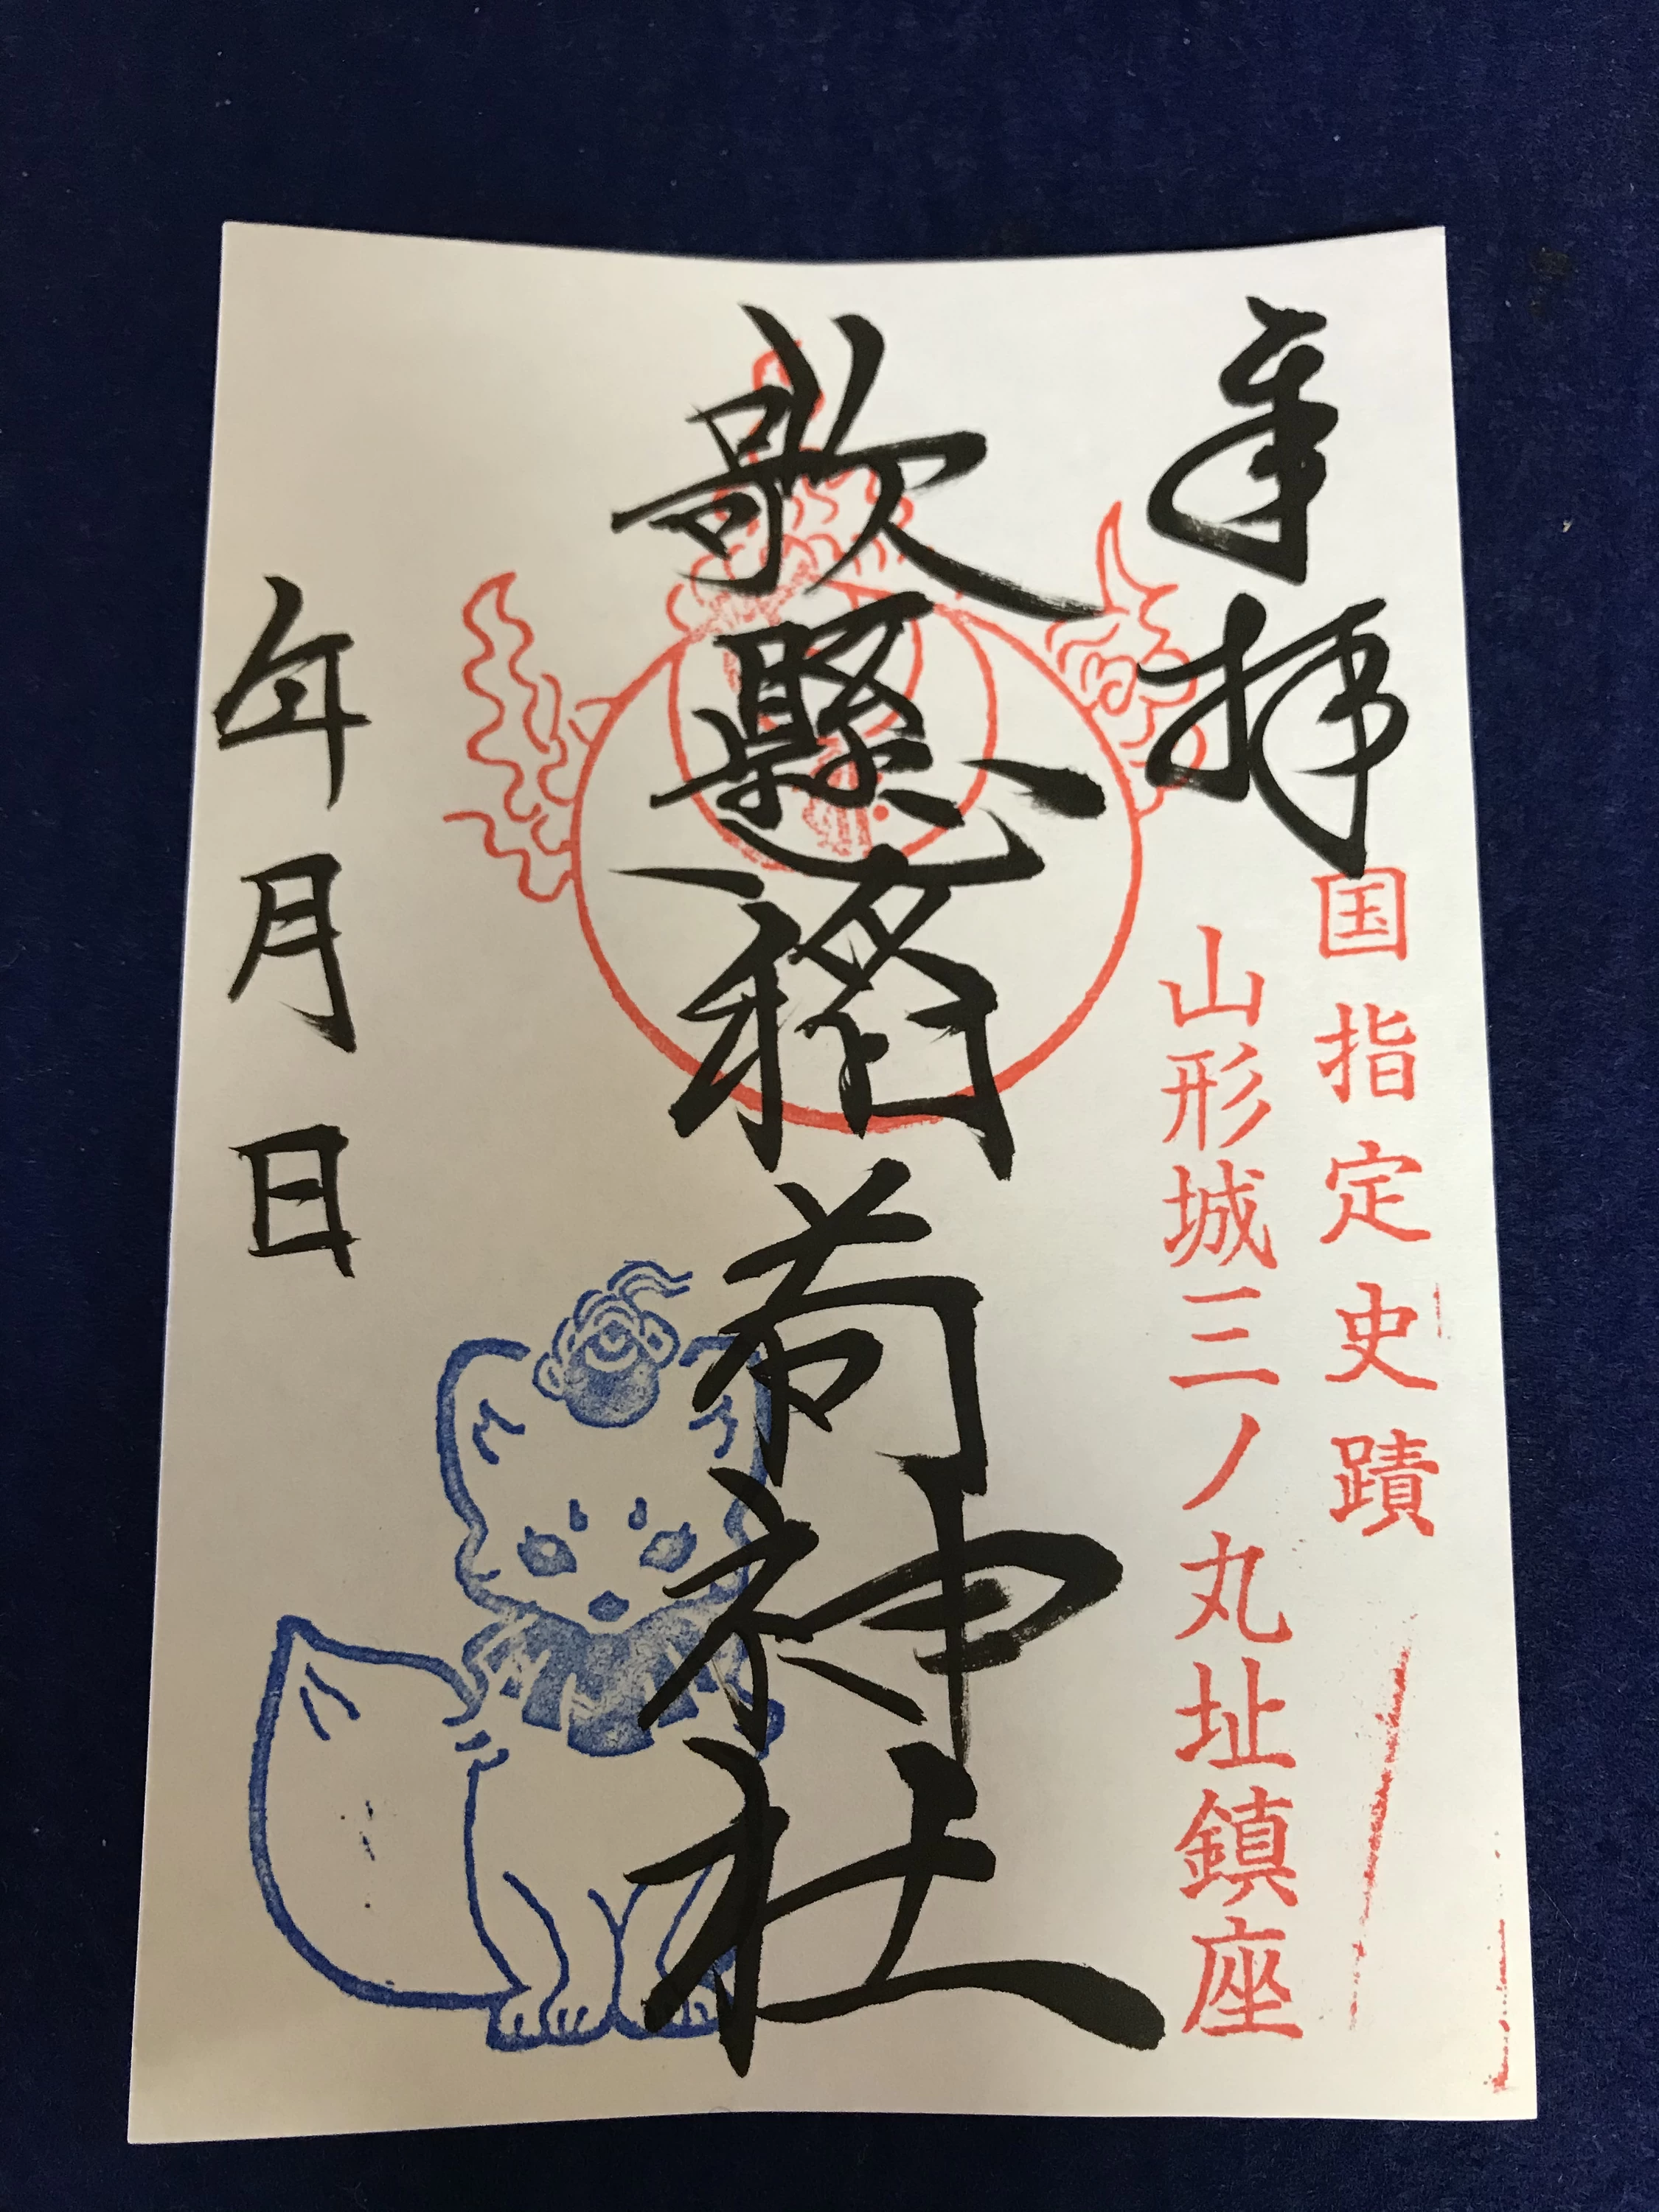 奉拝
国指定史蹟
山形城三ノ丸址鎮座
歌懸稲荷神社
年月日